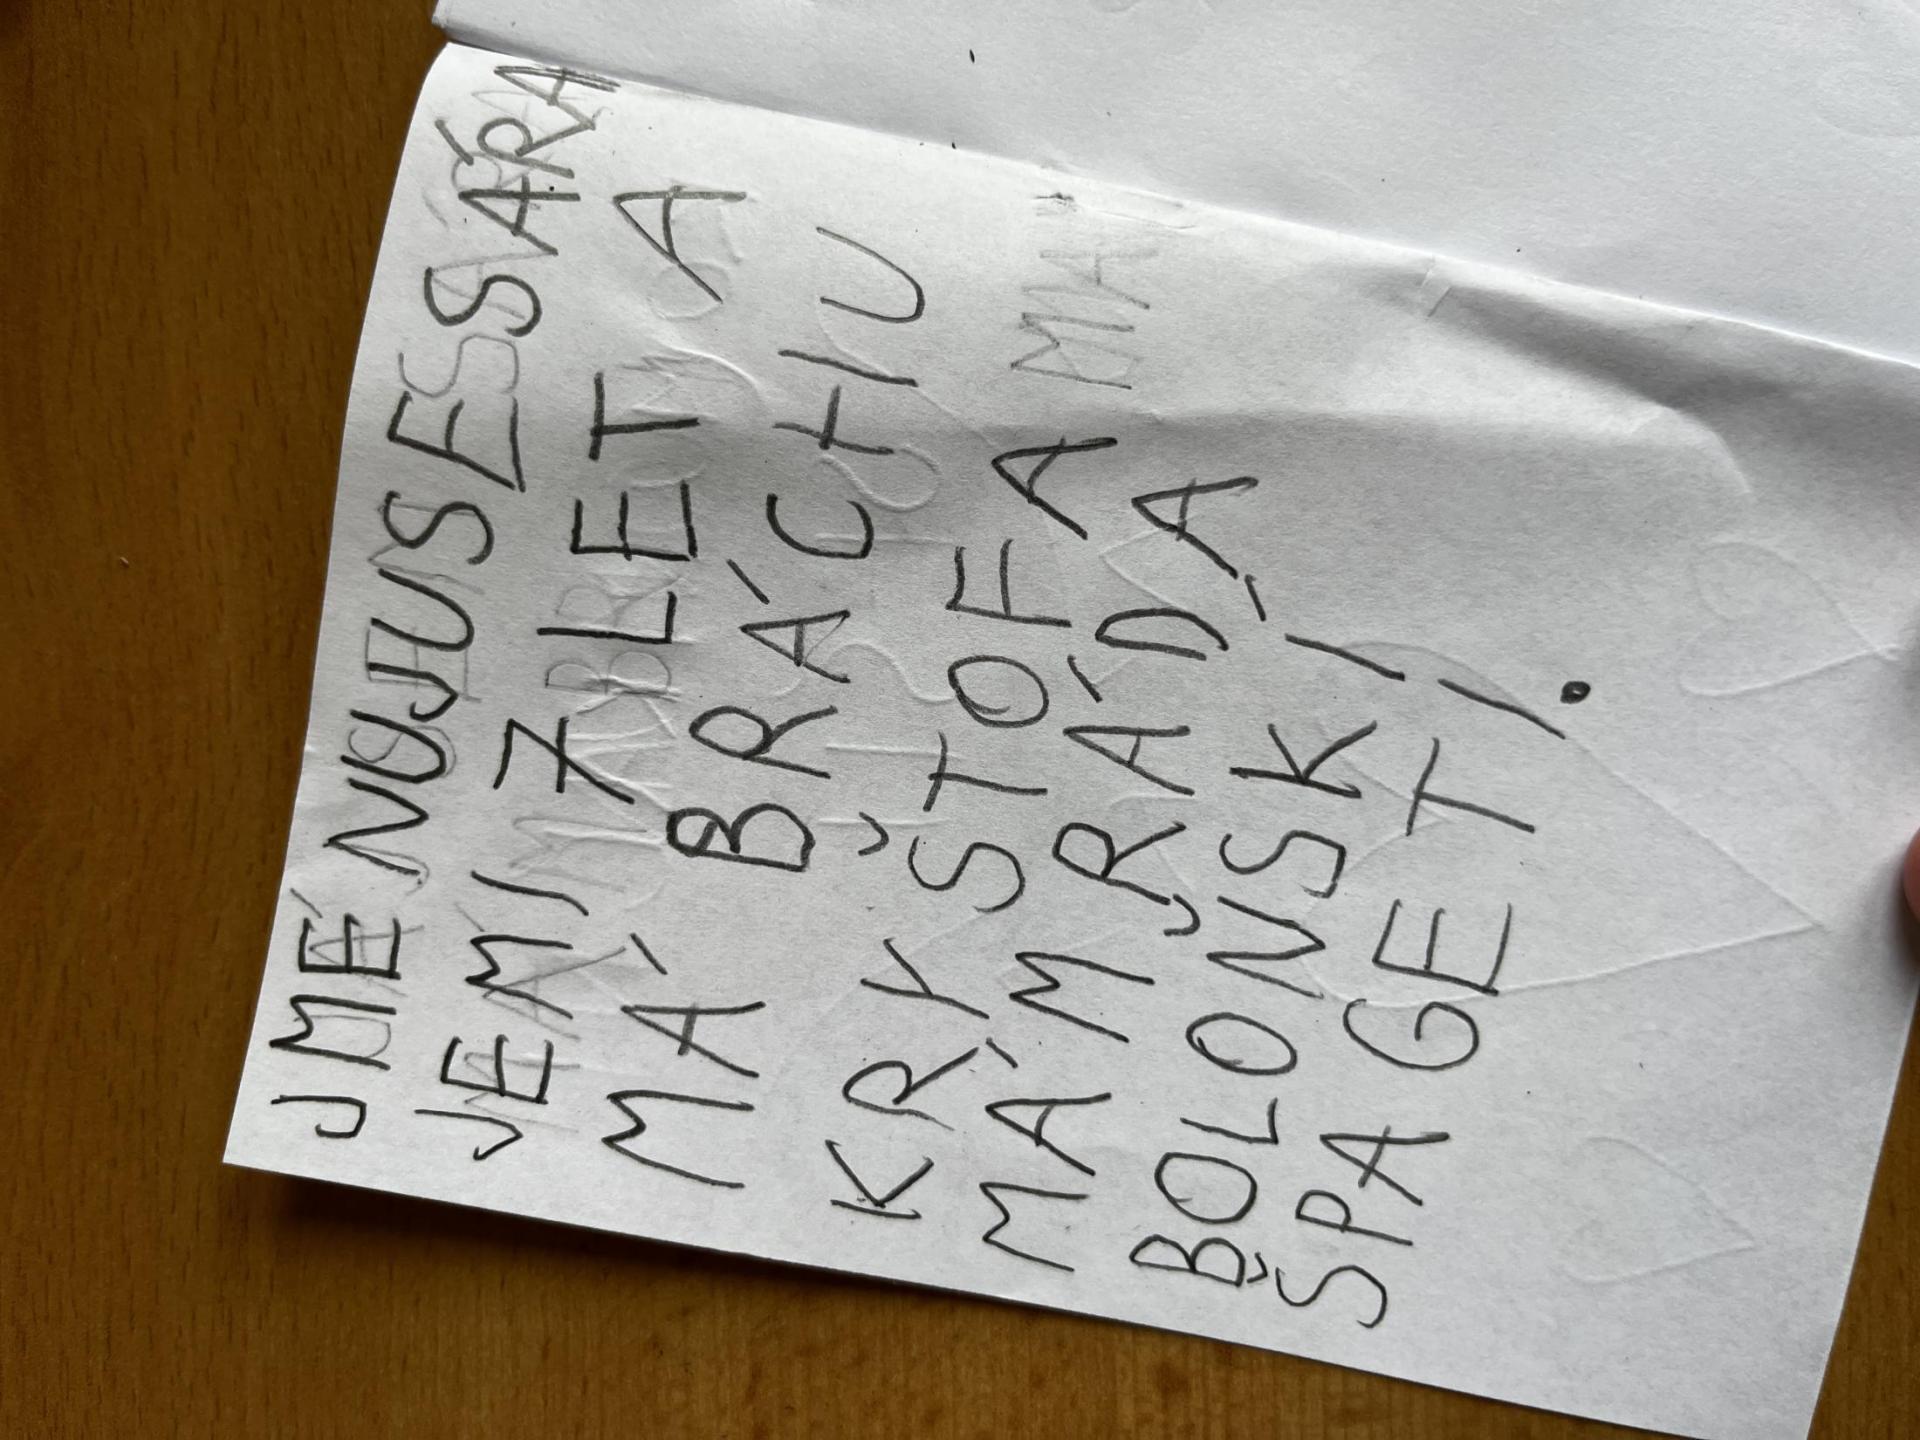 JMÉNUJUSESSÁRA
JEMI 7 LET A
MÁ BRÁCHU
KRYŠTOFA
MÁM RÁDA
BOLOŇSKÍ
ŠPAGETI.